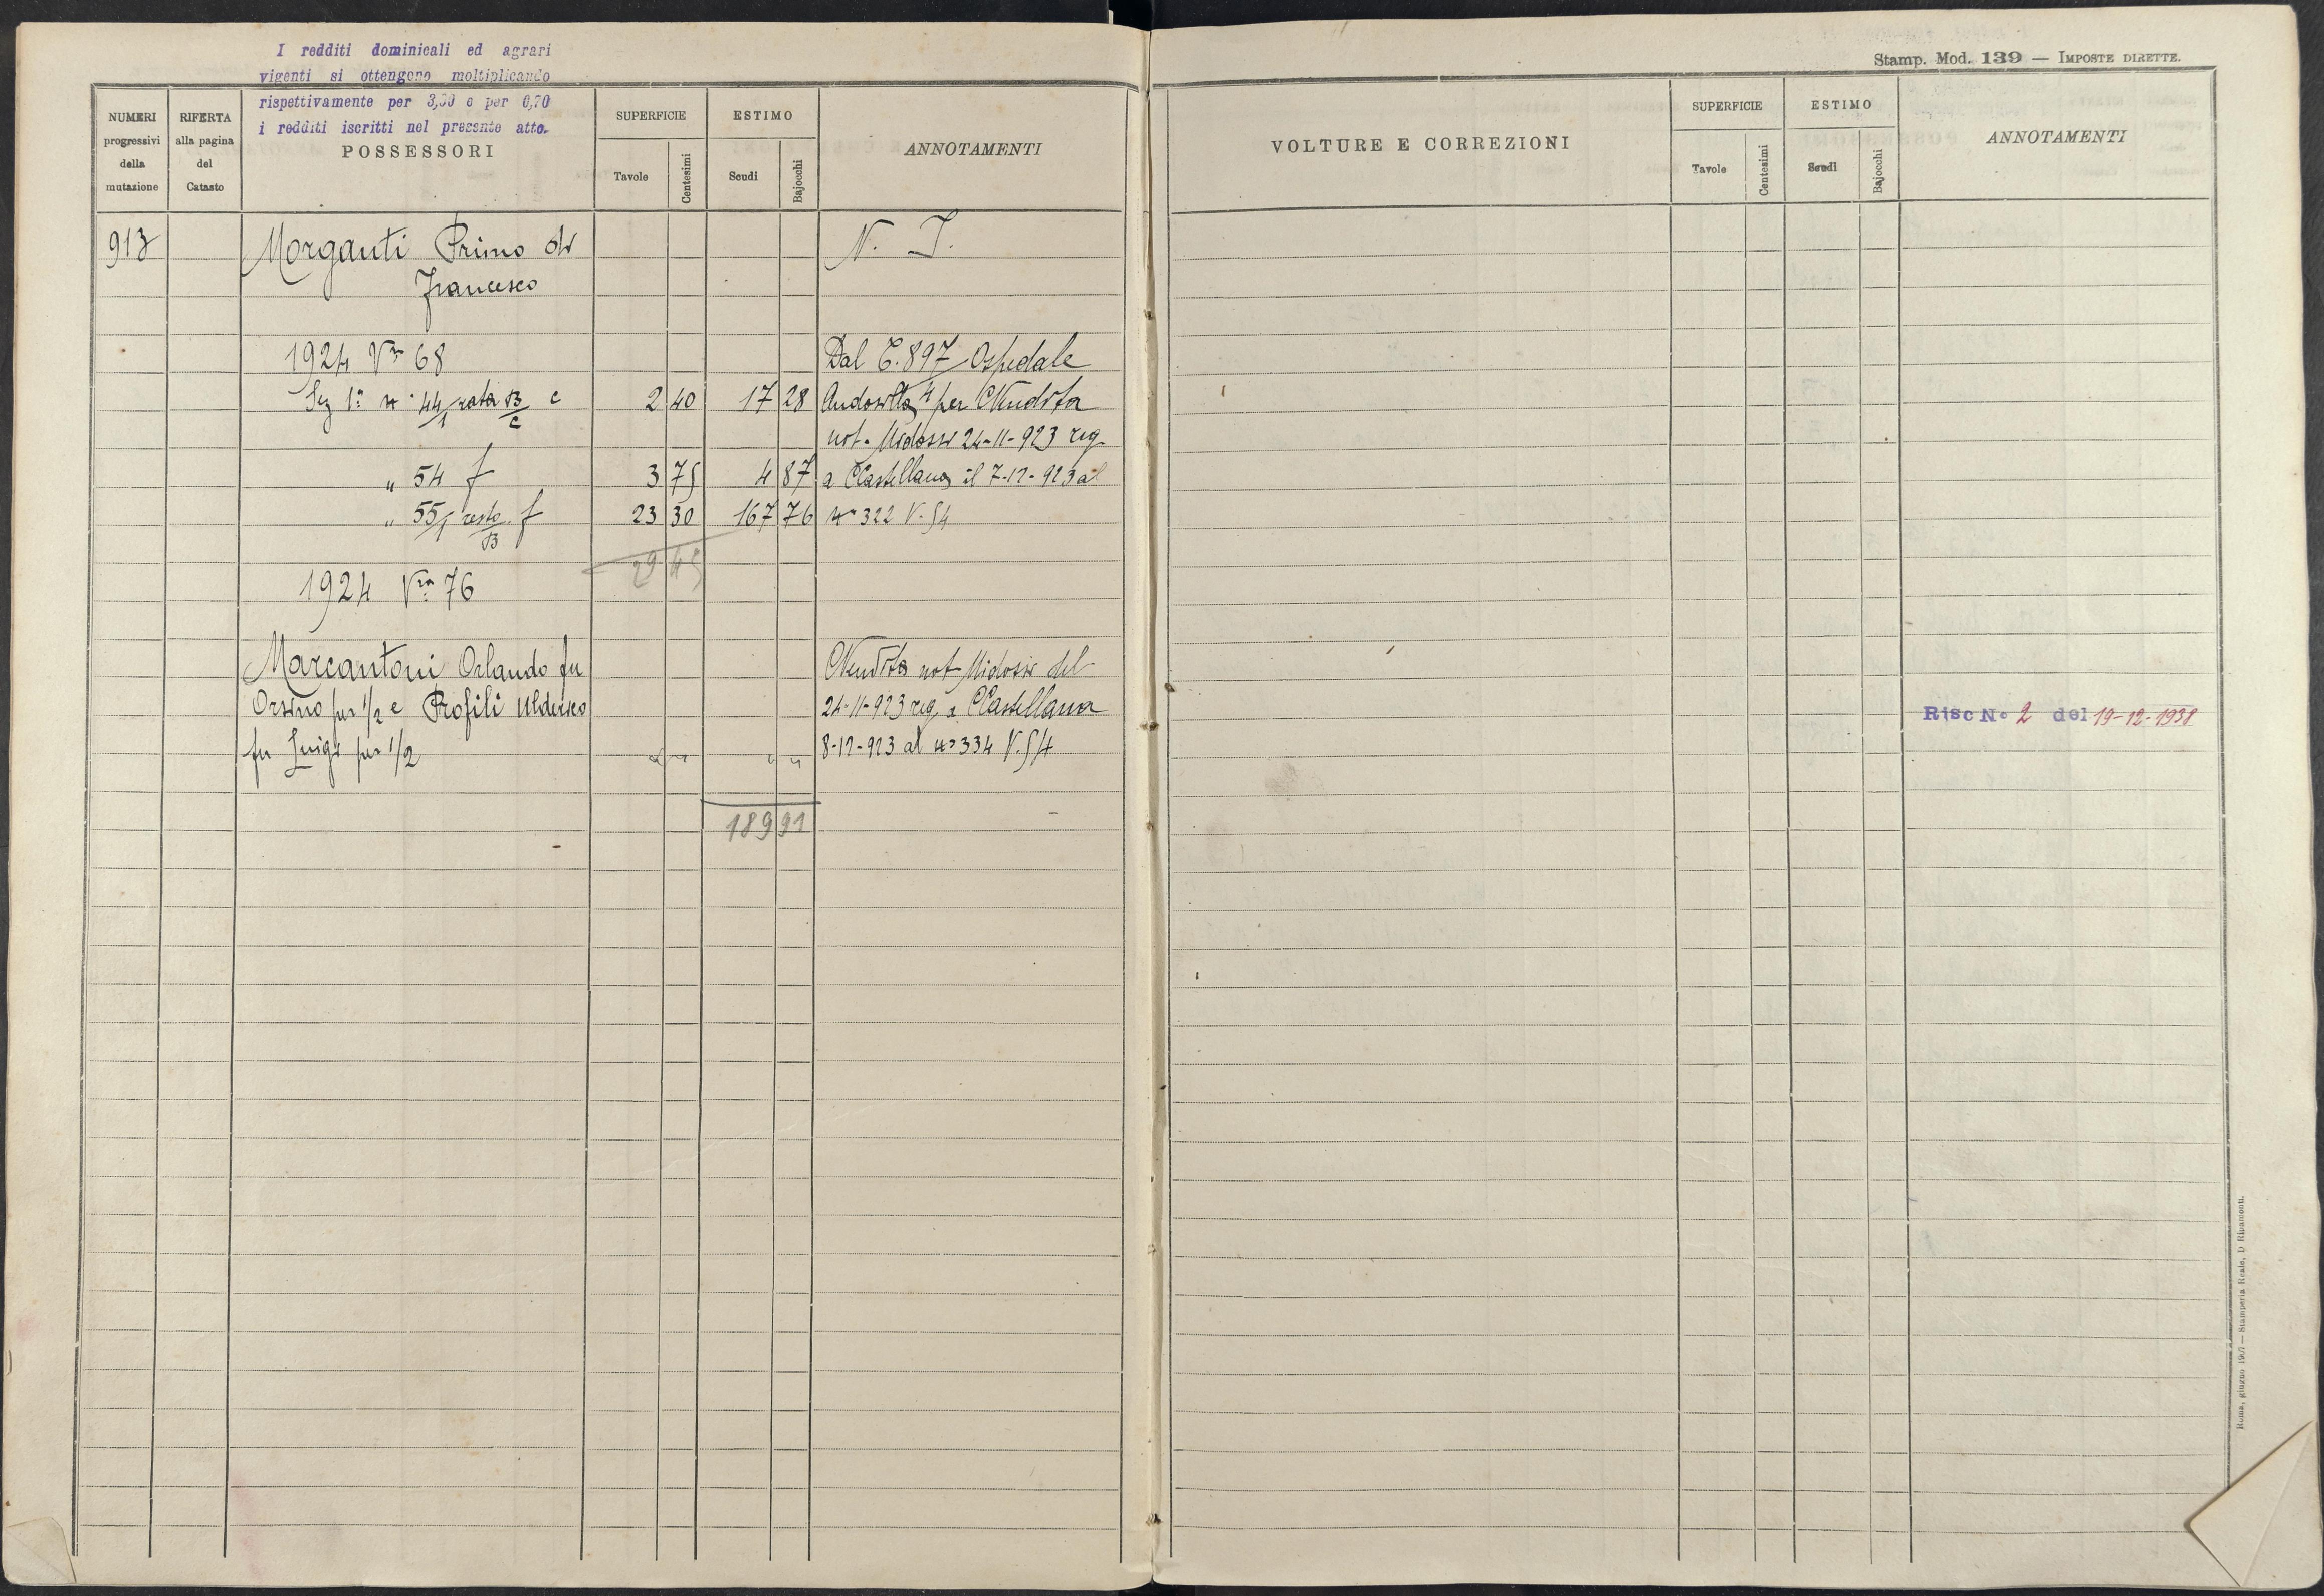 I redditi dominicali ed agrari
vigenti si ottengono moltiplicando
rispettivamente per 3,00 e per 0,70
i redditi iscritti nel presente atto.
NUMERI progressivi della mutazione
RIFERTA alla pagina del Catasto
POSSESSORI
SUPERFICIE
Tavole
Centesimi
ESTIMO
Scudi
Bajocchi
ANNOTAMENTI
913 Morganti Primo di N. I.
Francesco
1924 Vra 68 Dal C. 897 Ospedale
Sez 1a n. 44/1 rata B/c c 2 40 17 28 per Vendita
not. Midossi 24-11-923 reg
" 54 f 3 75 4 87 a CCastellana il 7-12-923 al
" 55/1 resto/B f 23 30 167 76 No 322 V. 54
29 45
1924 Vra 76
Marcantoni Orlando fu Vendita not Midossi del
Orsino per 1/2 e Profili Ulderico 24-11-923 reg a CCastellana
fu Luigi per 1/2 " " " " 8-12-923 al No 334 V. 54
189 91
Stamp. Mod. 139 — IMPOSTE DIRETTE.
VOLTURE E CORREZIONI
SUPERFICIE
Tavole
Centesimi
ESTIMO
Scudi
Bajocchi
ANNOTAMENTI
Risc No 2 del 19-12-1938